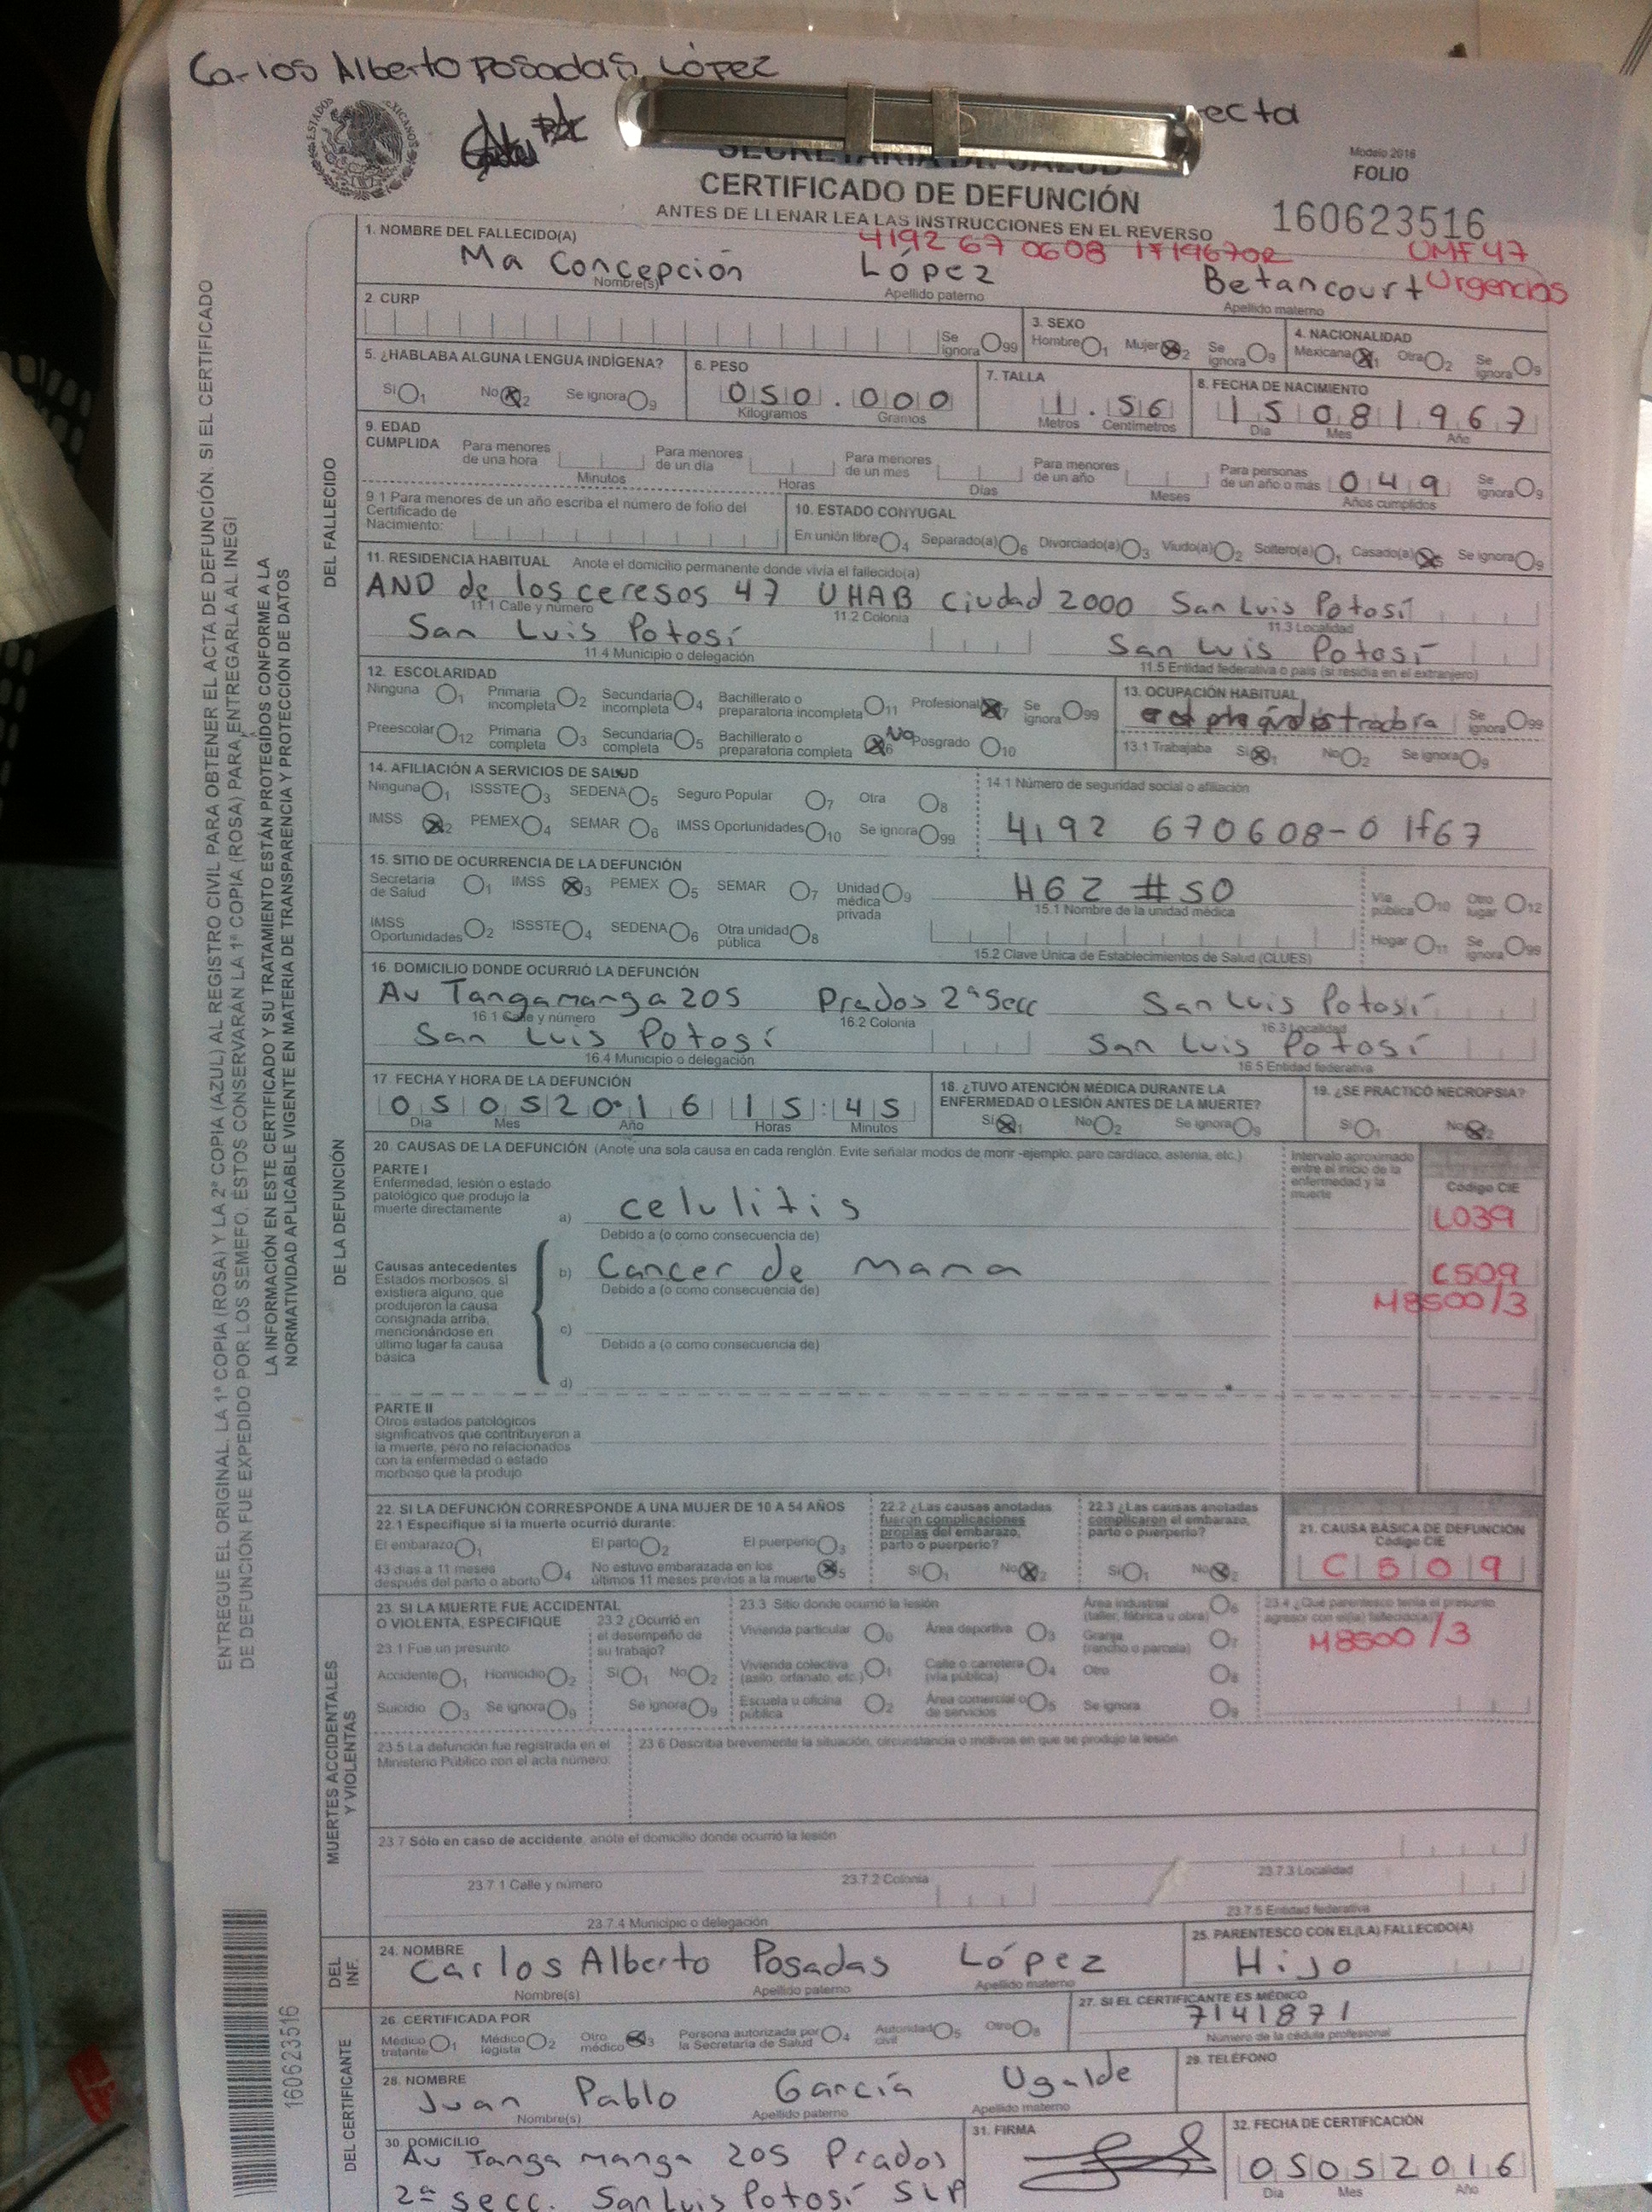 Carlos Alberto Posadas López
ecta
ESTADOS MEXICANOS
SECRETARÍA DE SALUD
CERTIFICADO DE DEFUNCIÓN
ANTES DE LLENAR LEA LAS INSTRUCCIONES EN EL REVERSO
Modelo 2016
FOLIO
160623516
4192 67 0608 1F1967OR UMF 47
1. NOMBRE DEL FALLECIDO(A)
Ma Concepción López Betancourt Urgencias
Nombre(s) Apellido paterno Apellido materno
2. CURP Se ignora 99 3. SEXO Hombre 1 Mujer 2 Se ignora 9 4. NACIONALIDAD Mexicana 1 Otra 2 Se ignora 9
5. ¿HABLABA ALGUNA LENGUA INDÍGENA? 6. PESO 7. TALLA 8. FECHA DE NACIMIENTO
Sí 1 No 2 Se ignora 9 050.000 1.56 15081967
Kilogramos Gramos Metros Centímetros Día Mes Año
9. EDAD CUMPLIDA Para menores de una hora Para menores de un día Para menores de un mes Para menores de un año Para personas de un año o más 049 Se ignora 9
Minutos Horas Días Meses Años cumplidos
9.1 Para menores de un año escriba el número de folio del Certificado de Nacimiento:
10. ESTADO CONYUGAL
En unión libre 4 Separado(a) 6 Divorciado(a) 3 Viudo(a) 2 Soltero(a) 1 Casado(a) 5 Se ignora 9
11. RESIDENCIA HABITUAL Anote el domicilio permanente donde vivía el fallecido(a)
AND de los ceresos 47 UHAB Ciudad 2000 San Luis Potosí
11.1 Calle y número 11.2 Colonia 11.3 Localidad
San Luis Potosí San Luis Potosí
11.4 Municipio o delegación 11.5 Entidad federativa o país (si residía en el extranjero)
12. ESCOLARIDAD
Ninguna 1 Primaria incompleta 2 Secundaria incompleta 4 Bachillerato o preparatoria incompleta 11 Profesional 7 Se ignora 99
Preescolar 12 Primaria completa 3 Secundaria completa 5 Bachillerato o preparatoria completa 6 No Posgrado 10
13. OCUPACIÓN HABITUAL
Se ignora 99
13.1 Trabajaba Sí 1 No 2 Se ignora 9
14. AFILIACIÓN A SERVICIOS DE SALUD
Ninguna 1 ISSSTE 3 SEDENA 5 Seguro Popular 7 Otra 8
IMSS 2 PEMEX 4 SEMAR 6 IMSS Oportunidades 10 Se ignora 99
14.1 Número de seguridad social o afiliación
4192 670608-0 1f67
15. SITIO DE OCURRENCIA DE LA DEFUNCIÓN
Secretaría de Salud 1 IMSS 3 PEMEX 5 SEMAR 7 Unidad médica privada 9
IMSS Oportunidades 2 ISSSTE 4 SEDENA 6 Otra unidad pública 8
HGZ #50
15.1 Nombre de la unidad médica
15.2 Clave Única de Establecimientos de Salud (CLUES)
Vía pública 10 Otro lugar 12
Hogar 11 Se ignora 99
16. DOMICILIO DONDE OCURRIÓ LA DEFUNCIÓN
Av Tangamanga 205 Prados 2ª Secc San Luis Potosí
16.1 Calle y número 16.2 Colonia 16.3 Localidad
San Luis Potosí San Luis Potosí
16.4 Municipio o delegación 16.5 Entidad federativa
17. FECHA Y HORA DE LA DEFUNCIÓN
05052016 15:45
Día Mes Año Horas Minutos
18. ¿TUVO ATENCIÓN MÉDICA DURANTE LA ENFERMEDAD O LESIÓN ANTES DE LA MUERTE?
Sí 1 No 2 Se ignora 9
19. ¿SE PRACTICÓ NECROPSIA?
Sí 1 No 2
20. CAUSAS DE LA DEFUNCIÓN (Anote una sola causa en cada renglón. Evite señalar modos de morir -ejemplo: paro cardíaco, astenia, etc.)
Intervalo aproximado entre el inicio de la enfermedad y la muerte
Código CIE
PARTE I
Enfermedad, lesión o estado patológico que produjo la muerte directamente
a) celulitis L039
Debido a (o como consecuencia de)
Causas antecedentes
Estados morbosos, si existiera alguno, que produjeron la causa consignada arriba, mencionándose en último lugar la causa básica
b) Cancer de mama C509
Debido a (o como consecuencia de)
M8500/3
c)
Debido a (o como consecuencia de)
d)
PARTE II
Otros estados patológicos significativos que contribuyeron a la muerte, pero no relacionados con la enfermedad o estado morboso que la produjo
22. SI LA DEFUNCIÓN CORRESPONDE A UNA MUJER DE 10 A 54 AÑOS
22.1 Especifique si la muerte ocurrió durante:
El embarazo 1 El parto 2 El puerperio 3
43 días a 11 meses después del parto o aborto 4 No estuvo embarazada en los últimos 11 meses previos a la muerte 5
22.2 ¿Las causas anotadas fueron complicaciones propias del embarazo, parto o puerperio?
Sí 1 No 2
22.3 ¿Las causas anotadas complicaron el embarazo, parto o puerperio?
Sí 1 No 2
21. CAUSA BÁSICA DE DEFUNCIÓN
Código CIE
C509
23. SI LA MUERTE FUE ACCIDENTAL O VIOLENTA, ESPECIFIQUE
23.1 Fue un presunto
Accidente 1 Homicidio 2
Suicidio 3 Se ignora 9
23.2 ¿Ocurrió en el desempeño de su trabajo?
Sí 1 No 2
Se ignora 9
23.3 Sitio donde ocurrió la lesión
Vivienda particular 0 Área deportiva 3 Área industrial (taller, fábrica u obra) 6
Vivienda colectiva (asilo, orfanato, etc.) 1 Calle o carretera (vía pública) 4 Granja (rancho o parcela) 7
Escuela u oficina pública 2 Área comercial o de servicios 5 Otro 8
Se ignora 9
23.4 ¿Qué parentesco tenía el presunto agresor con el(la) fallecido(a)?
M8500/3
23.5 La defunción fue registrada en el Ministerio Público con el acta número:
23.6 Describa brevemente la situación, circunstancia o motivos en que se produjo la lesión
23.7 Sólo en caso de accidente, anote el domicilio donde ocurrió la lesión
23.7.1 Calle y número 23.7.2 Colonia 23.7.3 Localidad
23.7.4 Municipio o delegación 23.7.5 Entidad federativa
24. NOMBRE
Carlos Alberto Posadas López
Nombre(s) Apellido paterno Apellido materno
25. PARENTESCO CON EL(LA) FALLECIDO(A)
Hijo
26. CERTIFICADA POR
Médico tratante 1 Médico legista 2 Otro médico 3 Persona autorizada por la Secretaría de Salud 4 Autoridad civil 5 Otro 8
27. SI EL CERTIFICANTE ES MÉDICO
7141871
Número de la cédula profesional
28. NOMBRE
Juan Pablo García Ugalde
Nombre(s) Apellido paterno Apellido materno
29. TELÉFONO
30. DOMICILIO
Av Tangamanga 205 Prados
2ª secc. San Luis Potosí SLP
31. FIRMA
32. FECHA DE CERTIFICACIÓN
05052016
Día Mes Año
DEL FALLECIDO
DE LA DEFUNCIÓN
MUERTES ACCIDENTALES Y VIOLENTAS
DEL INF.
DEL CERTIFICANTE
ENTREGUE EL ORIGINAL, LA 1ª COPIA (ROSA) Y LA 2ª COPIA (AZUL) AL REGISTRO CIVIL PARA OBTENER EL ACTA DE DEFUNCIÓN. SI EL CERTIFICADO
DE DEFUNCIÓN FUE EXPEDIDO POR LOS SEMEFO, ÉSTOS CONSERVARÁN LA 1ª COPIA (ROSA) PARA ENTREGARLA AL INEGI
LA INFORMACIÓN EN ESTE CERTIFICADO Y SU TRATAMIENTO ESTÁN PROTEGIDOS CONFORME A LA
NORMATIVIDAD APLICABLE VIGENTE EN MATERIA DE TRANSPARENCIA Y PROTECCIÓN DE DATOS
160623516